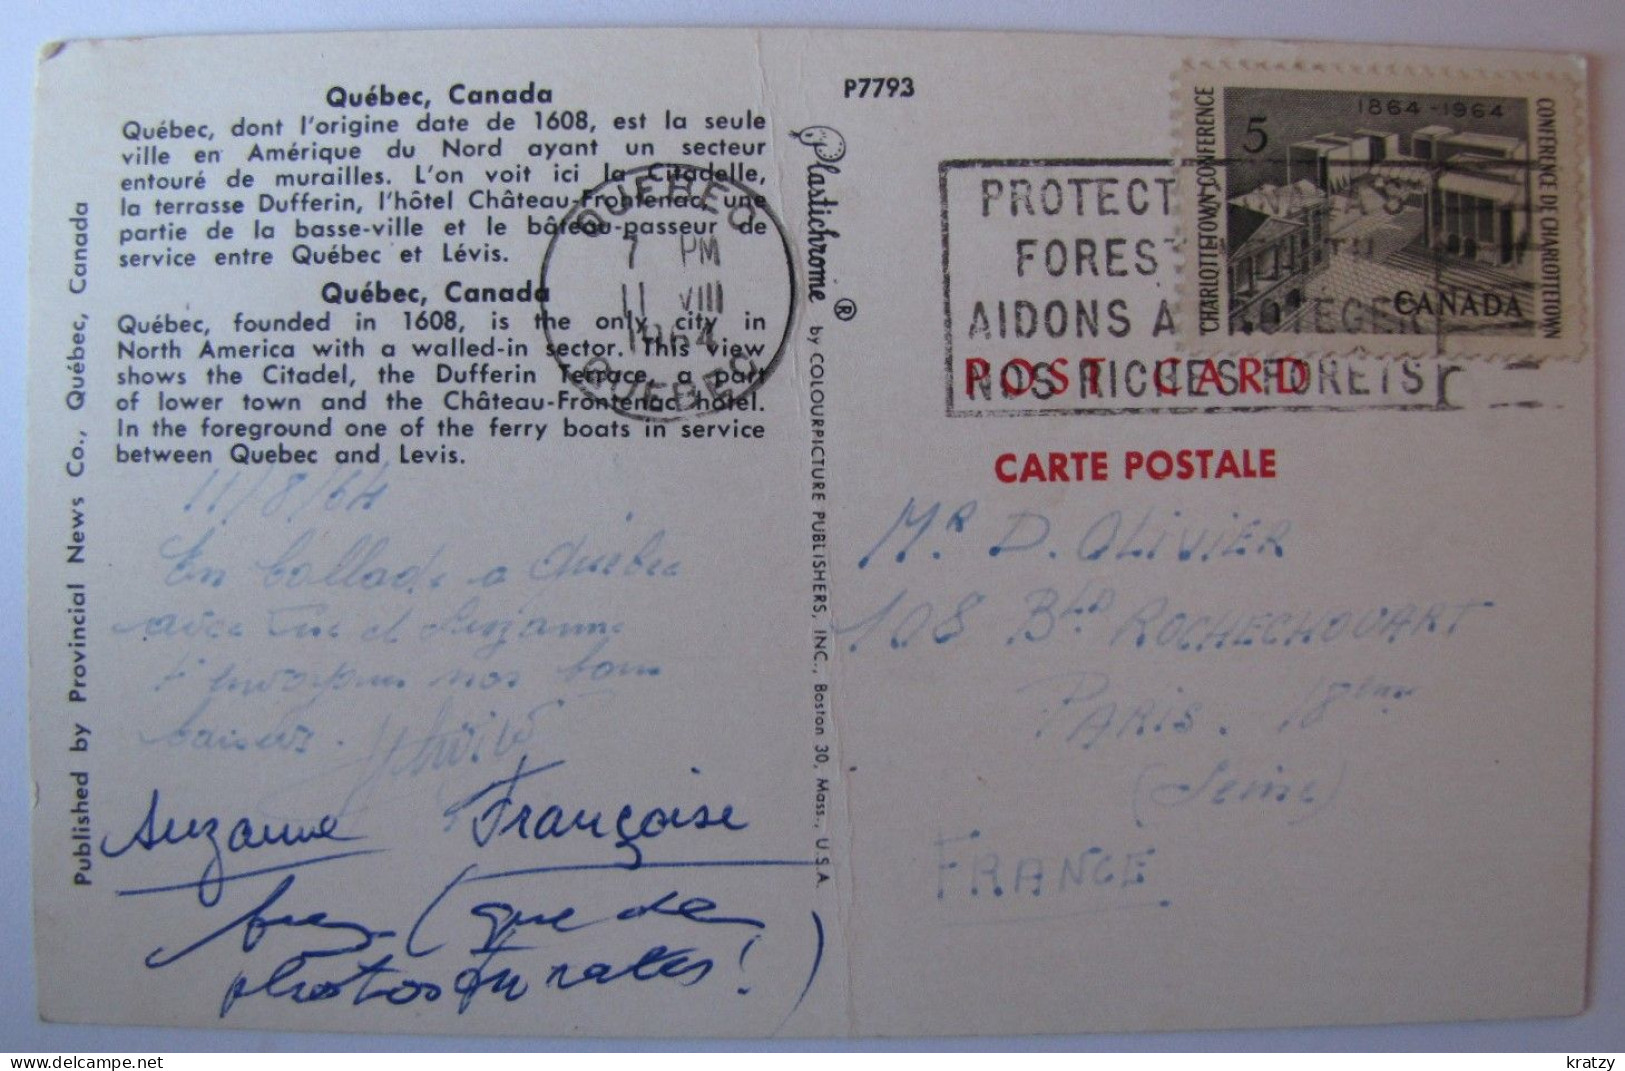 Québec, Canada
Québec, dont l'origine date de 1608, est la seule
ville en Amérique du Nord ayant un secteur
entouré de murailles. L'on voit ici la Citadelle,
la terrasse Dufferin, l'hôtel Château-Frontenac, une
partie de la basse-ville et le bâteau-passeur de
service entre Québec et Lévis.
Québec, Canada
Québec, founded in 1608, is the only city in
North America with a walled-in sector. This view
shows the Citadel, the Dufferin Terrace, a part
of lower town and the Château-Frontenac hotel.
In the foreground one of the ferry boats in service
between Quebec and Levis.
Published by Provincial News Co., Québec, Canada
11/8/64
En ballade a Québec
avec et Suzanne
nos bons
baisers.
Suzanne Françoise
(que de
photos ratées!)
Plastichrome ® by COLOURPICTURE PUBLISHERS, INC., Boston 30, Mass., U.S.A.
P7793
QUEBEC
7 PM
11 VIII
1964
QUEBEC
PROTECT CANADA'S
FORES
AIDONS A PROTEGER
NOS RICHES FORETS
1864-1964
5
CHARLOTTETOWN CONFERENCE
CONFERENCE DE CHARLOTTETOWN
CANADA
POST CARD
CARTE POSTALE
Mr D. OLIVIER
108 Bld ROCHECHOUART
PARIS. 18eme
(Seine)
FRANCE
kratzy